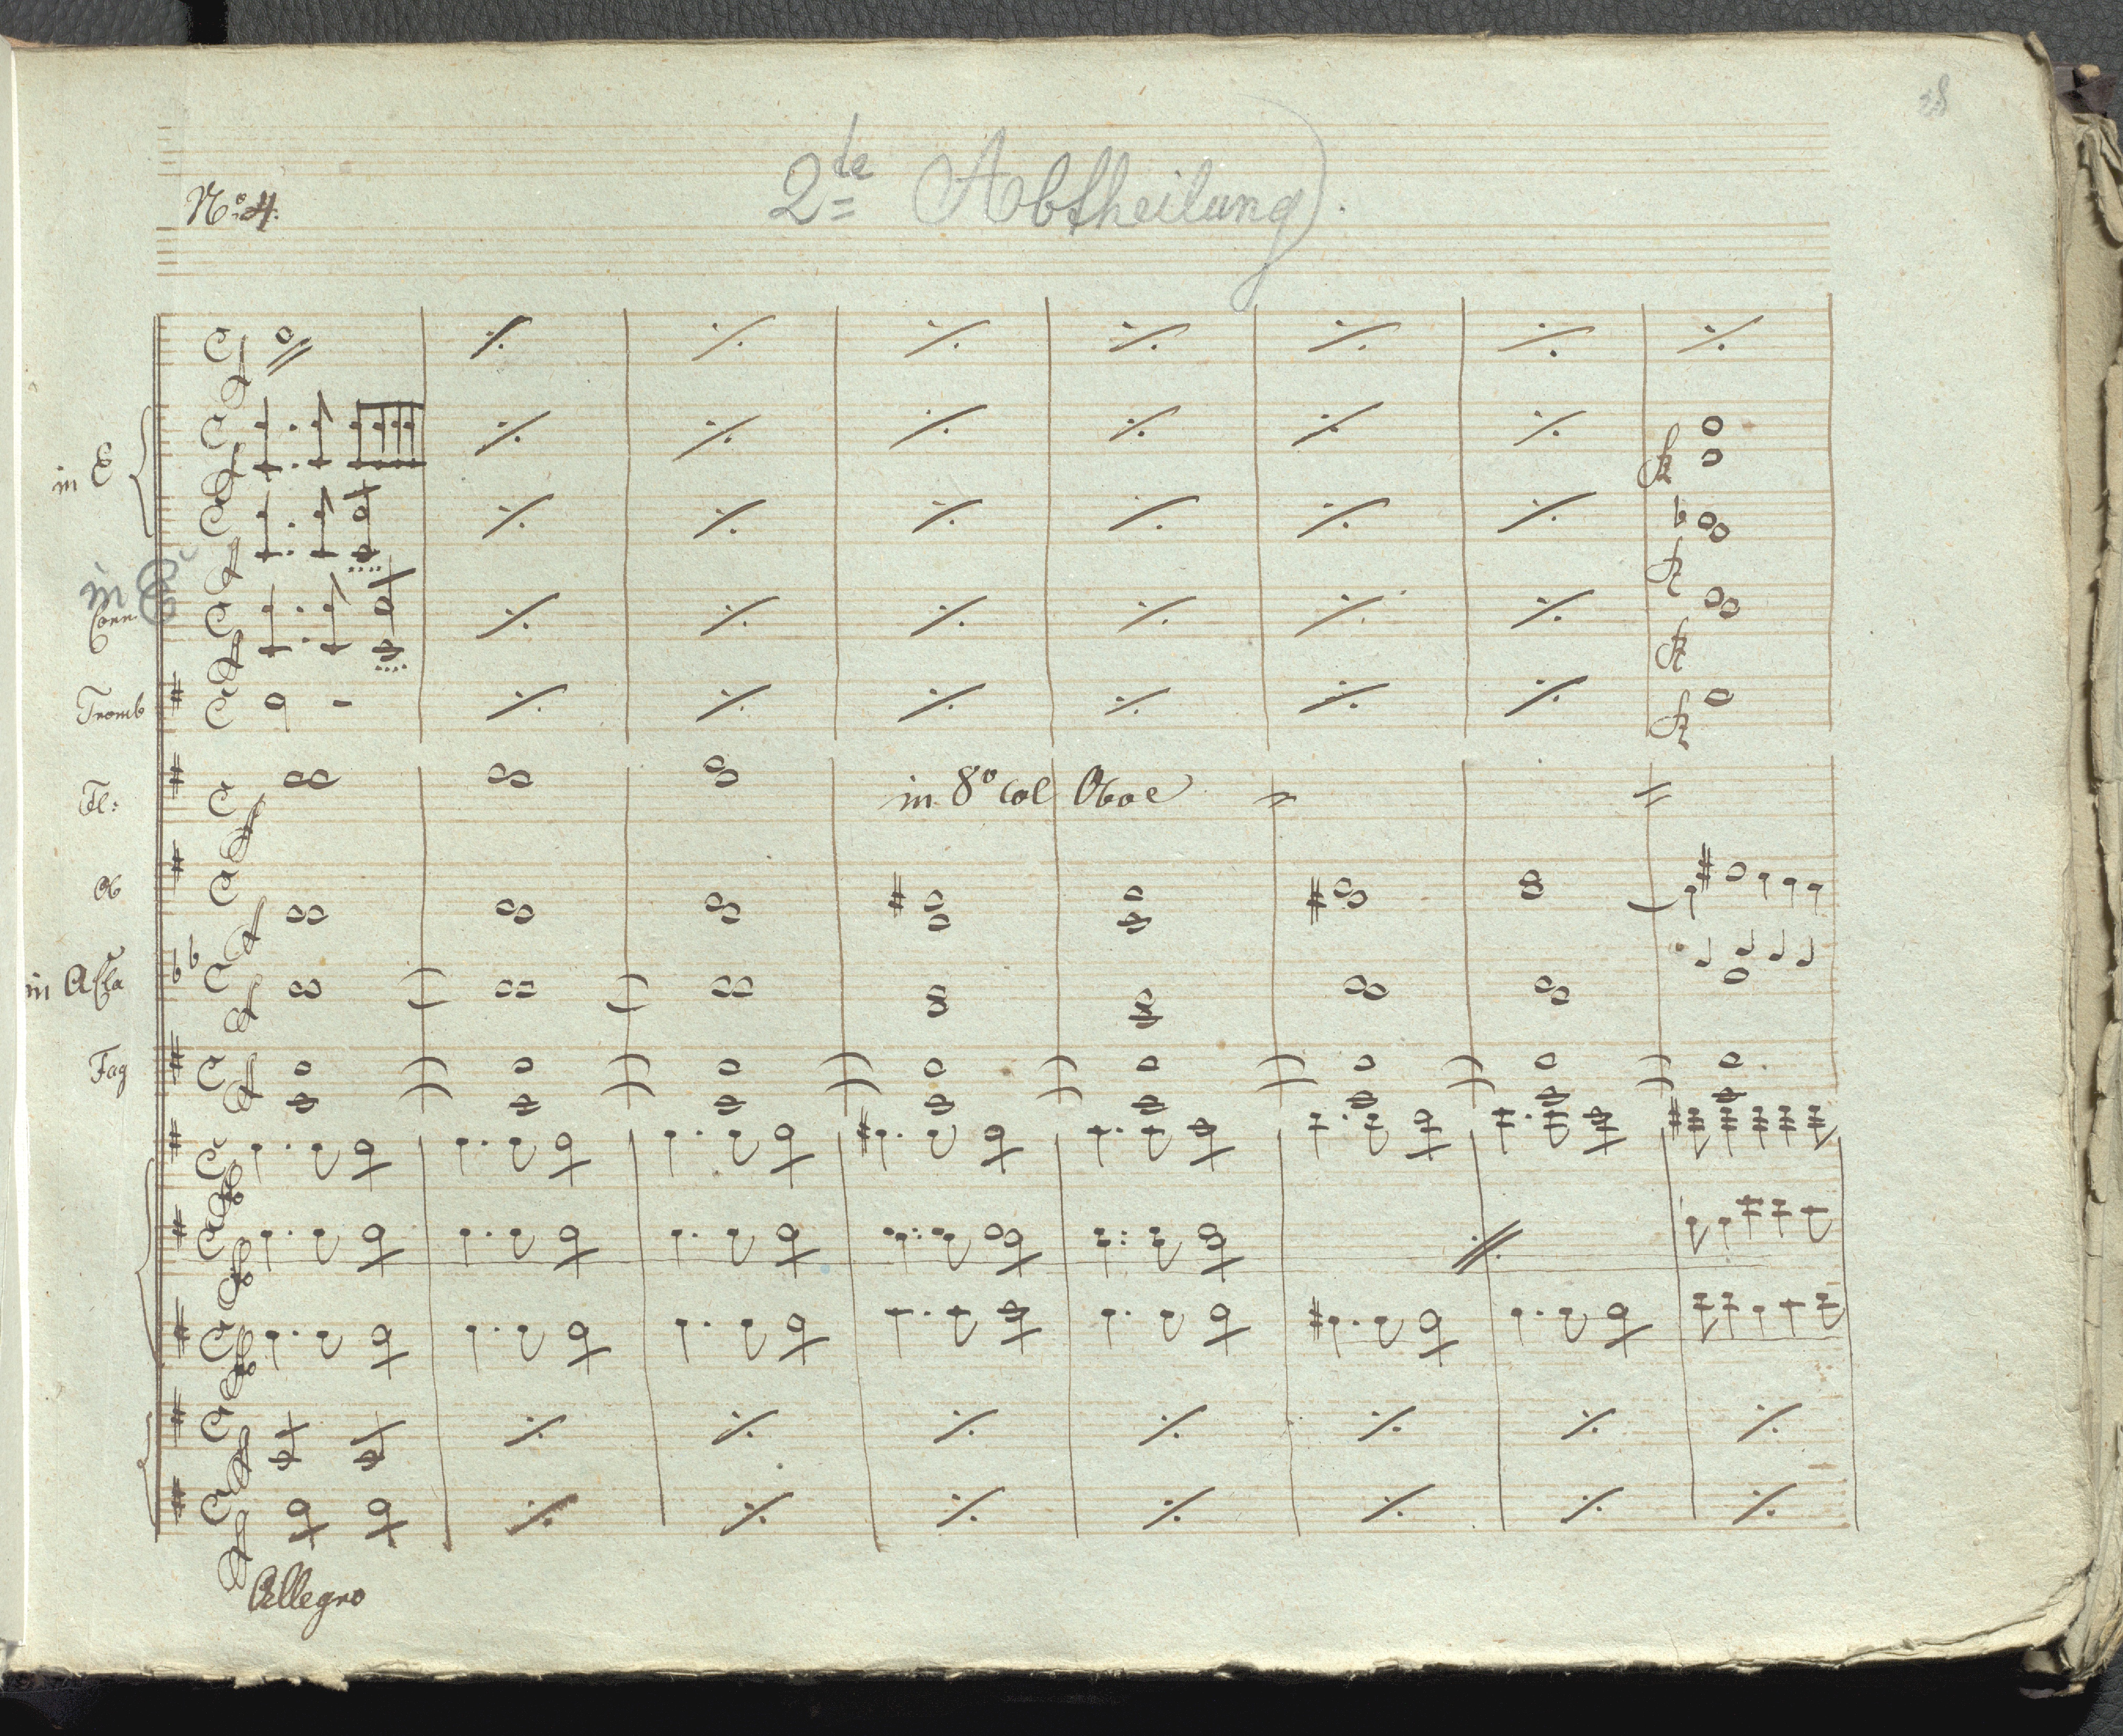 28
2te Abtheilung
No: 4.
in E
in E
Corn.
Tromb
Fl:
in 8o col Oboe
Ob
in A Cla
Fag
Allegro